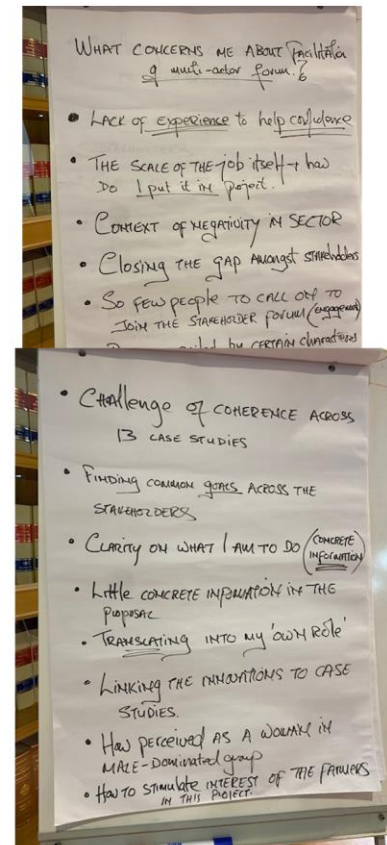 WHAT CONCERNS ME ABOUT Facilitation
of multi-actor forum?
• LACK OF experience to help confidence
• THE SCALE OF THE job itself → how
DO I put it IN project.
• CONTEXT OF NEGATIVITY IN SECTOR
• Closing THE gap Amongst stakeholders
• So few people TO CALL ON TO
JOIN THE STAKEHOLDER forum (engagement)
by CERTAIN characters
• Challenge of COHERENCE ACROSS
13 CASE STUDIES
• FINDING COMMON goals ACROSS THE
STAKEHOLDERS
• CLARITY ON WHAT I AM TO DO (CONCRETE
INFORMATION)
• Little CONCRETE INFORMATION IN THE
PROPOSAL
• TRANSLATING INTO my 'OWN RôlE'
• LINKING THE INNOVATIONS TO CASE
STUDIES.
• How perceived AS A WOMAN IN
MALE-Dominated group
• How to STIMULATE INTEREST OF THE FARMERS
IN THIS PROJECT.